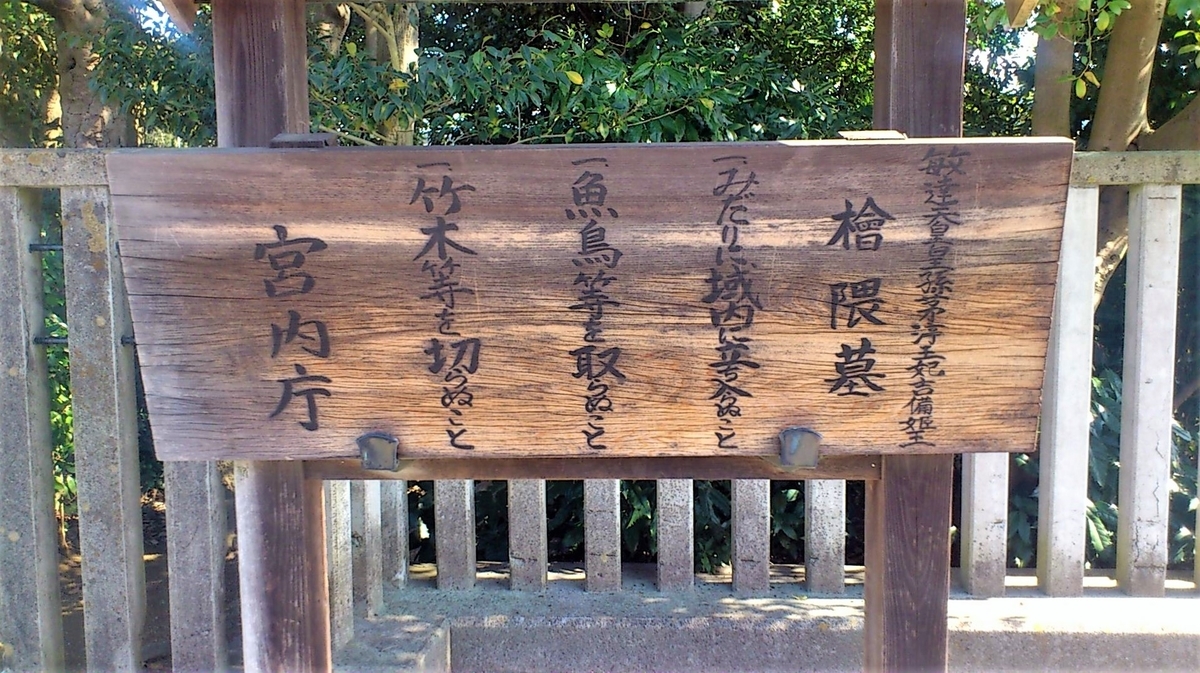 敏達天皇皇孫茅渟王妃吉備姫王
檜隈墓
一みだりに域内に立入らぬこと
一魚鳥等を取らぬこと
一竹木等を切らぬこと
宮内庁